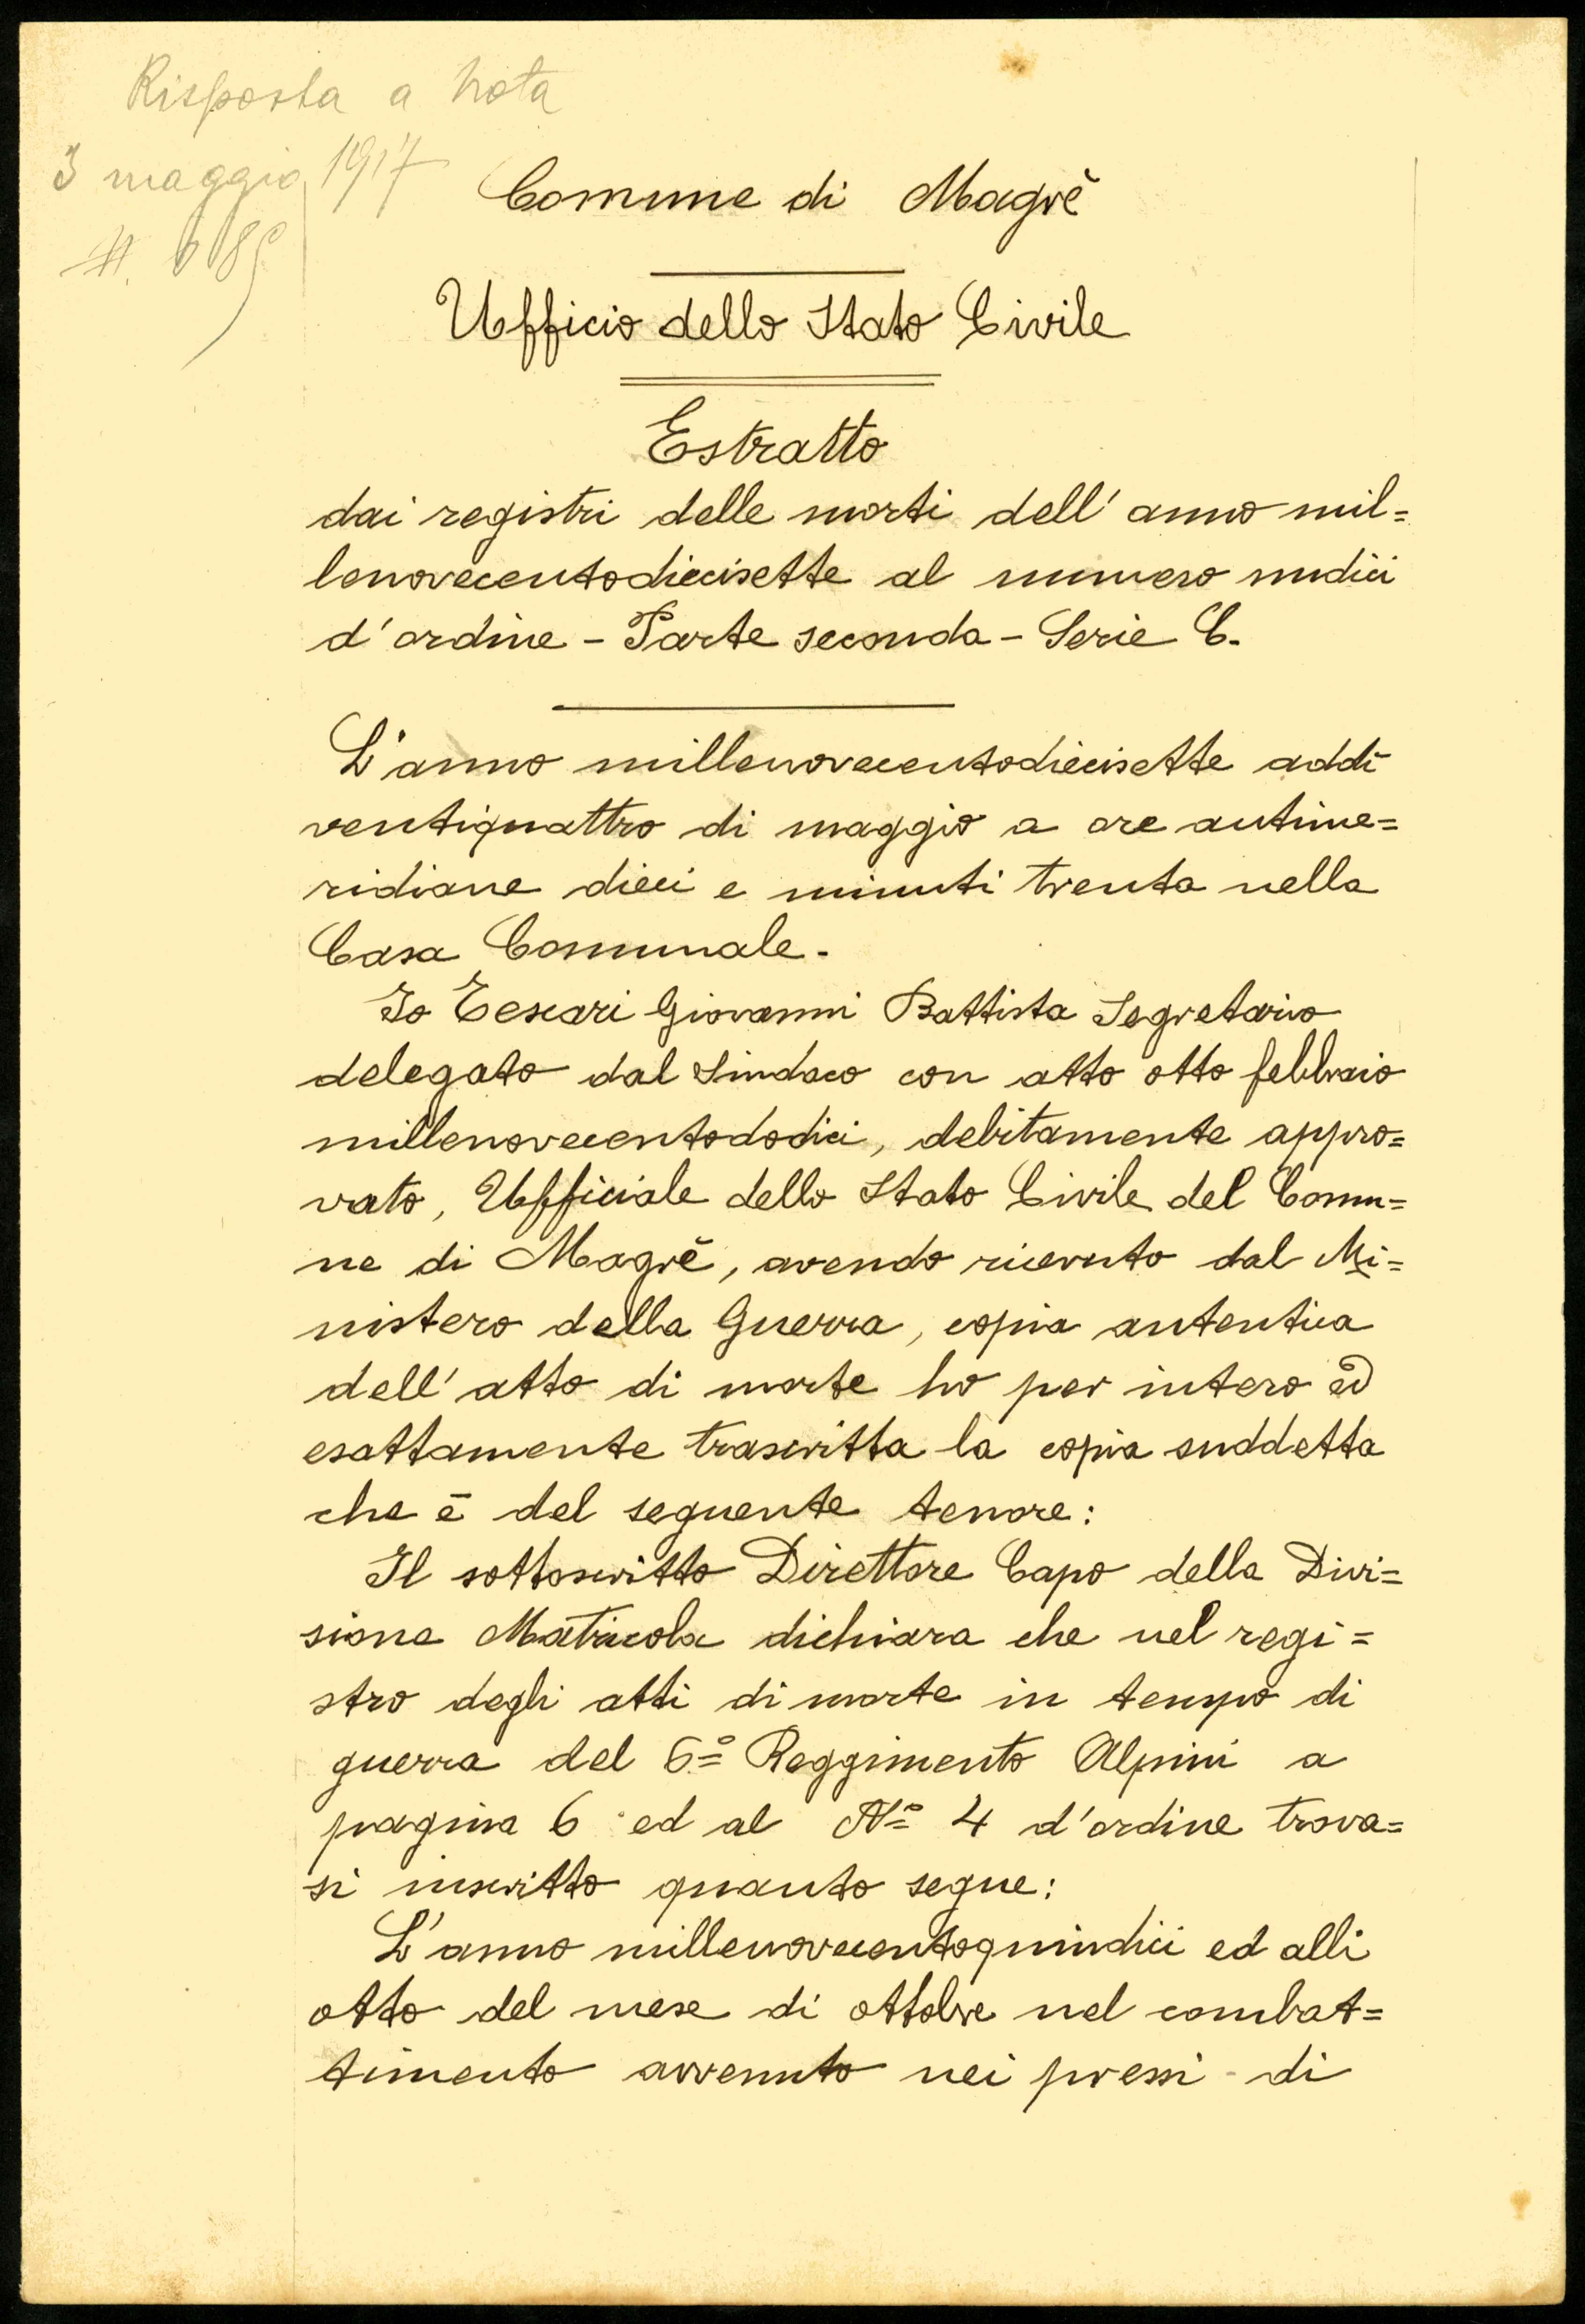 Risposta a nota
3 maggio 1917
N.
Comune di Magrè
Ufficio dello Stato Civile
Estratto
dai registri delle morti dell' anno mil=
lenovecentodiecisette al numero undici
d' ordine - Parte seconda - Serie C.
L'anno millenovecentodiecisette addì
ventiquattro di maggio a ore antime=
ridiane dieci e minuti trenta nella
Casa Comunale.
Io Tescari Giovanni Battista Segretario
delegato dal Sindaco con atto otto febbraio
millenovecentododici, debitamente appro=
vato, Ufficiale dello Stato Civile del Comu=
ne di Magrè, avendo ricevuto dal Mi=
nistero della Guerra, copia autentica
dell' atto di morte ho per intero ed
esattamente trascritta la copia suddetta
che è del seguente tenore:
Il sottoscritto Direttore Capo della Divi=
sione Matricola dichiara che nel regi=
stro degli atti di morte in tempo di
guerra del 6º Reggimento Alpini a
pagina 6 ed al Nº 4 d'ordine trova=
si inscritto quanto segue:
L'anno millenovecentoquindici ed alli
otto del mese di ottobre nel combat=
timento avvenuto nei pressi di